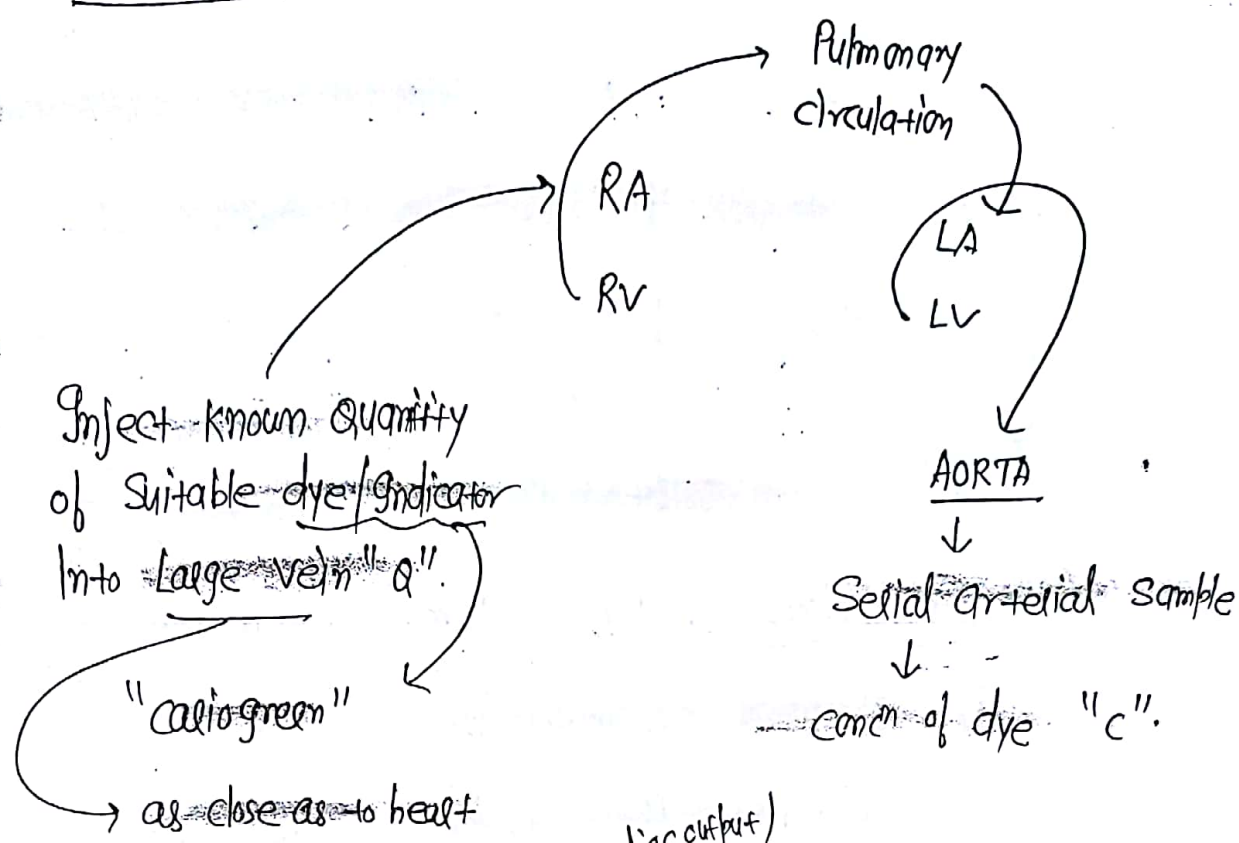 Pulmonary
circulation
RA
RV
LA
LV
Inject known Quantity
of Suitable dye/Indicator
Into Large vein "Q".
"cardiogreen"
as close as to heart
AORTA
↓
Serial arterial sample
↓
concn of dye "c".
output)